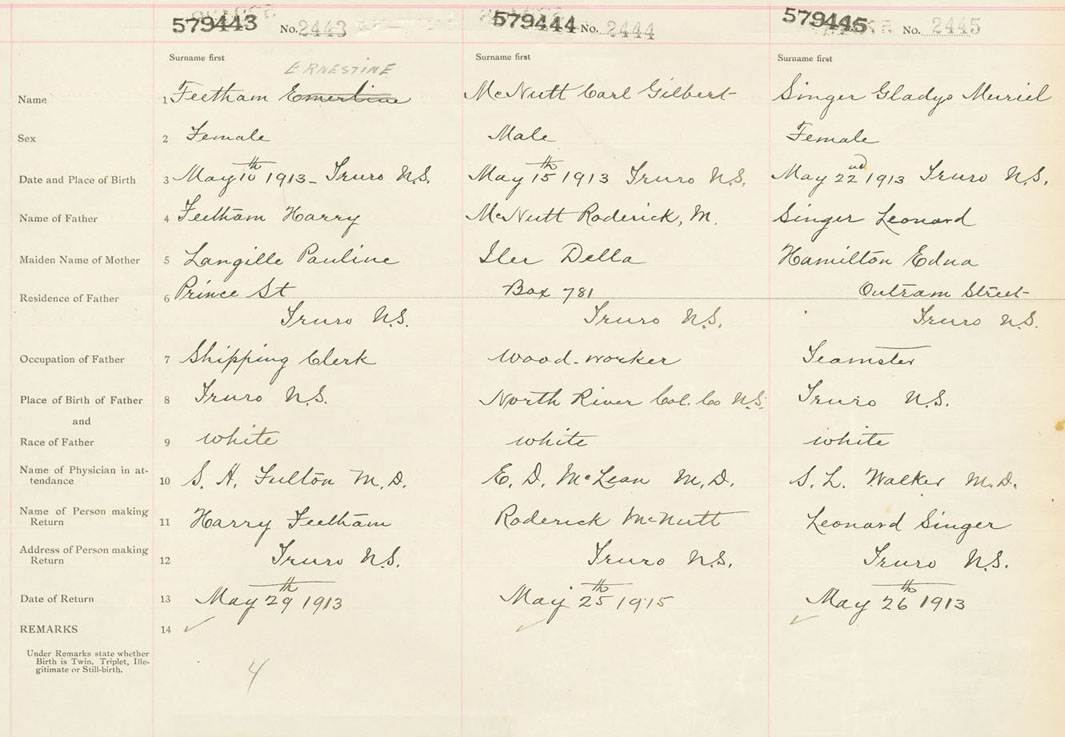 579443 No. 2443 579444 No. 2444 579445 No. 2445
Surname first Surname first Surname first
ERNESTINE
Name 1 Feetham Emerline McNutt Carl Gilbert Singer Gladys Muriel
Sex 2 Female Male Female
Date and Place of Birth 3 May 10th 1913 - Truro N.S. May 15th 1913 Truro N.S. May 22nd 1913 Truro N.S.
Name of Father 4 Feetham Harry McNutt Roderick, M. Singer Leonard
Maiden Name of Mother 5 Langille Pauline Iler Della Hamilton Edna
Residence of Father 6 Prince St Box 781 Outram Street
Truro N.S. Truro N.S. Truro N.S.
Occupation of Father 7 Shipping Clerk Wood-worker Teamster
Place of Birth of Father 8 Truro N.S. North River Col. Co N.S. Truro N.S.
and
Race of Father 9 white white white
Name of Physician in at-
tendance 10 S. H. Fulton M.D. E. D. McLean M.D. S. L. Walker M.D.
Name of Person making
Return 11 Harry Feetham Roderick McNutt Leonard Singer
Address of Person making
Return 12 Truro N.S. Truro N.S. Truro N.S.
Date of Return 13 May 29th 1913 May 25th 1915 May 26th 1913
REMARKS 14
Under Remarks state whether
Birth is Twin, Triplet, Ille-
gitimate or Still-birth.
4